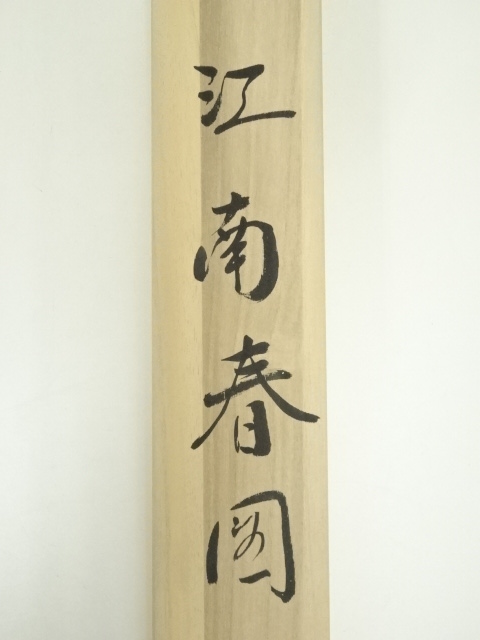 江南春図